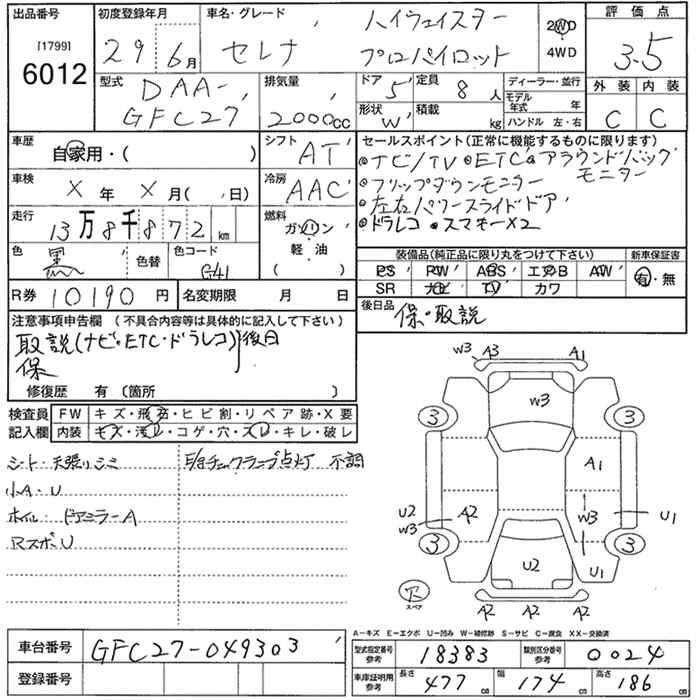 出品番号
[1799]
6012
初度登録年月
29年6月
車名・グレード
セレナ
ハイウェイスター
プロパイロット
2WD
4WD
評価点
3.5
外装 内装
C C
型式
DAA-
GFC27
排気量
2000cc
ドア 5
定員 8人
形状 W
積載 kg
ディーラー・並行
モデル年式 年
ハンドル 左・右
車歴
自家用・( )
シフト
AT
車検
X年X月( 日)
冷房
AAC
走行
13万8千872km
燃料
ガソリン
軽・油
( )
色
黒
色替
色コード
G41
R券 10190円
名変期限 月 日
セールスポイント(正常に機能するものに限ります)
・ナビ/TV ・ETC ・アラウンドバックモニター
・フリップダウンモニター
・左右パワースライドドア
・ドラレコ ・スマキーX2
装備品(純正品に限り丸をつけて下さい)
PS PW ABS エアB AW
SR ナビ TV カワ
新車保証書
有・無
後日品
保・取説
注意事項申告欄(不具合内容等は具体的に記入して下さい)
取説(ナビ・ETC・ドラレコ)}後日
保
修復歴 有〔箇所 〕
検査員記入欄
FW キズ・飛石・ヒビ割・リペア跡・X要
内装 キズ・汚レ・コゲ・穴・スレ・キレ・破レ
シート・天張リシミ
小A・U
ホイル・ドアミラーA
Rスポ U
チェックランプ点灯 不調
W3 A3 A1
W3
3 3
A1
U2
W3
A2
W3
U1
3 3
U2
U1
穴
スペア
A2 A2 A2
A-キズ E-エクボ U-凹み W-補修跡 S-サビ C-腐食 XX-交換済
車台番号 GFC27-049303
登録番号
型式指定番号 参考 18383
類別区分番号 参考 0024
車庫証明用 参考 長さ 477cm 幅 174cm 高さ 186cm